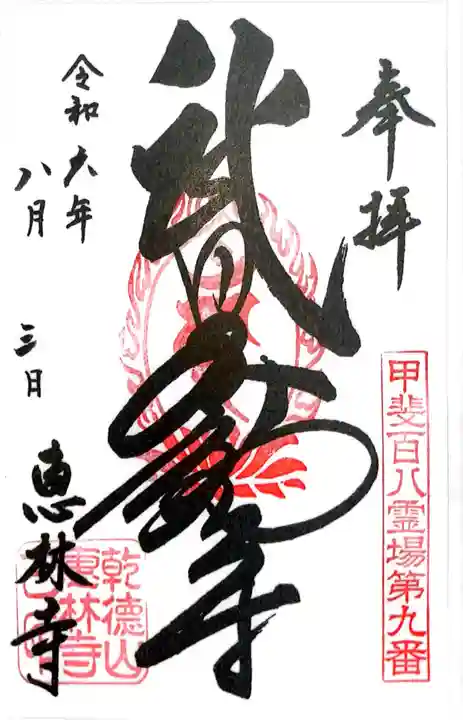 奉拝
甲斐百八霊場第九番
武田不動尊
令和六年
八月
三日
恵林寺
乾徳山
恵林寺